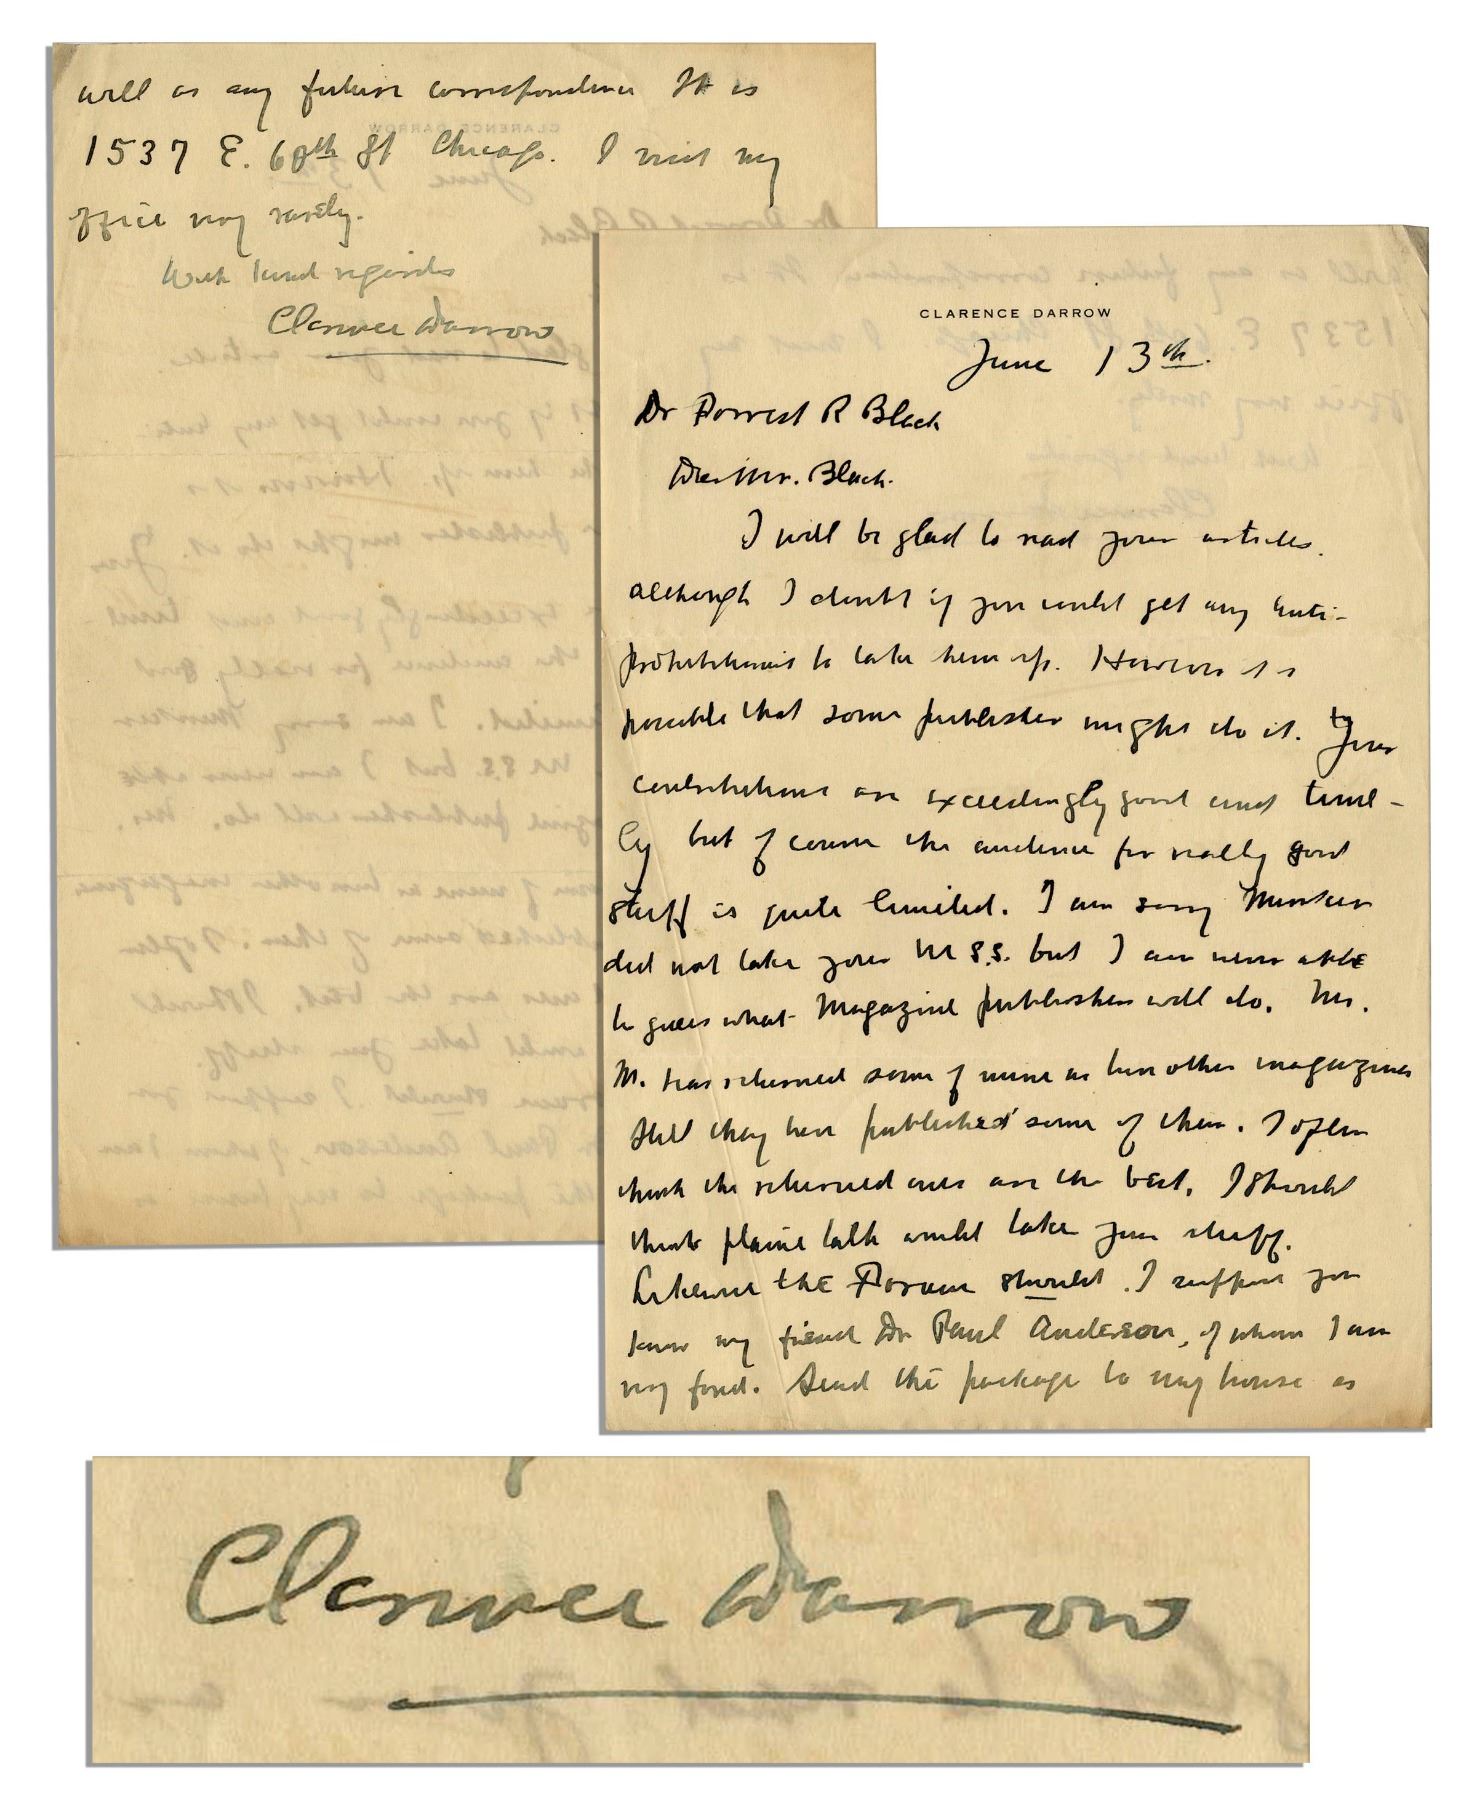 CLARENCE DARROW
June 13th.
Dr Forrest R Black
Dear Mr. Black.
I will be glad to read your articles.
although I doubt if you could get any anti-
prohibitionist to take them up. However it is
possible that some publisher might do it. Your
contributions are exceedingly good and time-
ly but of course the audience for really good
stuff is quite limited. I am sorry Mencken
did not take your M S.S. but I am never able
to guess what Magazine publishers will do. Mr.
M. has returned some of mine as have other magazines
still they have published some of them. I often
think the returned ones are the best. I should
think plain talk would take your stuff.
Likewise the Forum should. I suppose you
know my friend Dr Paul Anderson, of whom I am
very fond. Send the package to my house as
will as any future correspondence It is
1537 E. 60th St Chicago. I visit my
office very rarely.
With kind regards
Clarence Darrow
Clarence Darrow